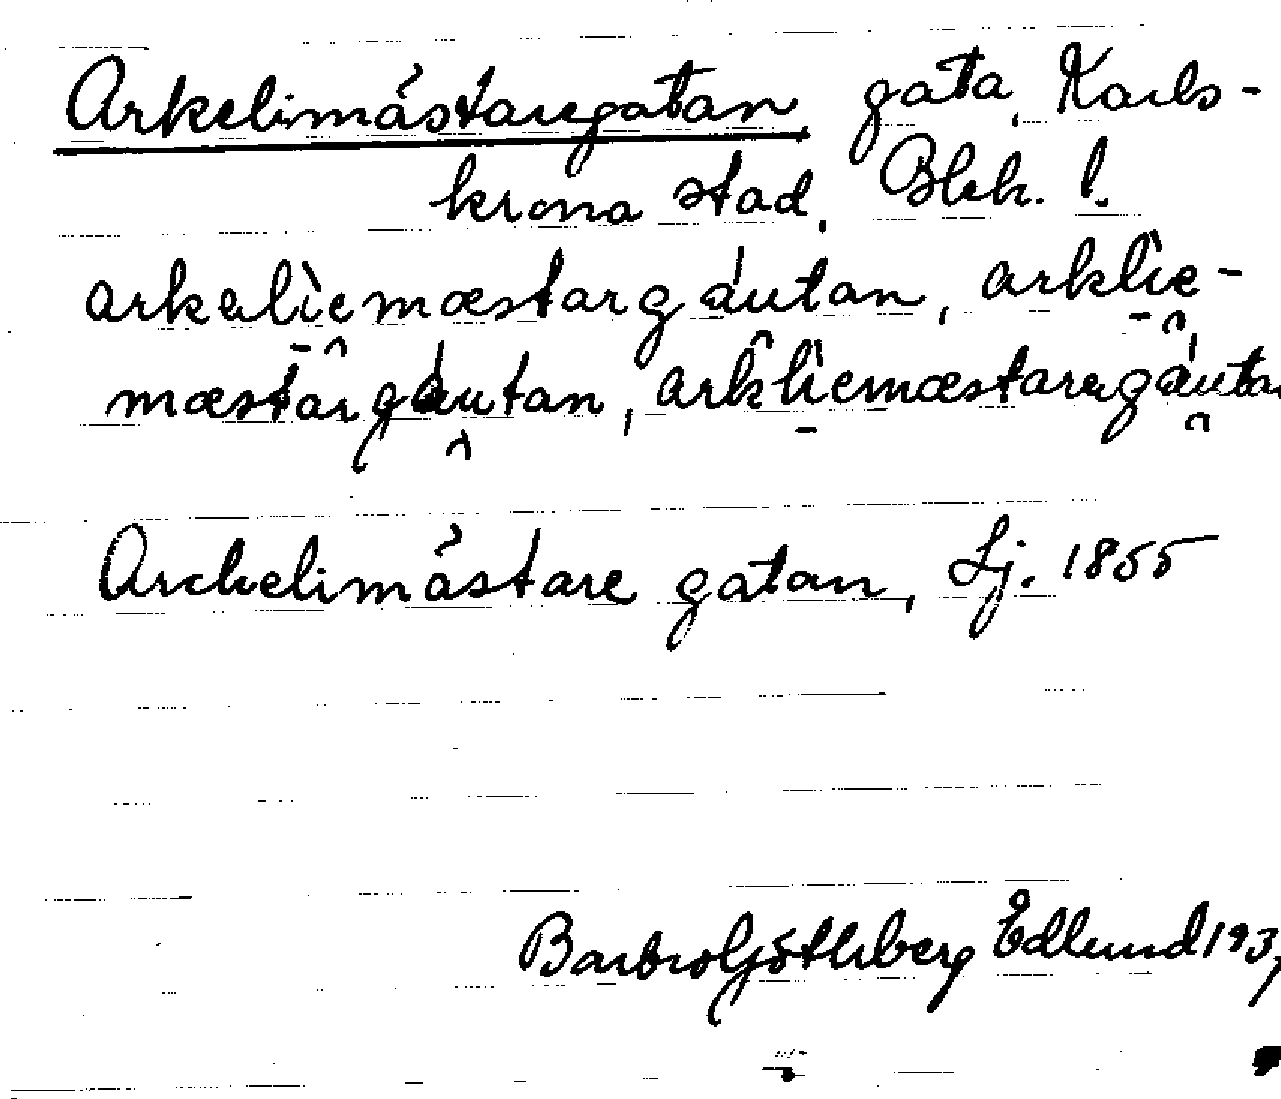 Arkelimästaregatan, gata, Karls-
krona stad, Blek. l.
arkelìemæstargáutan, arklìe-
mæstargáutan, arklìemæstaregáutan
Archelimästare gatan, Lj. 1855
Barbro Göthberg Edlund 193